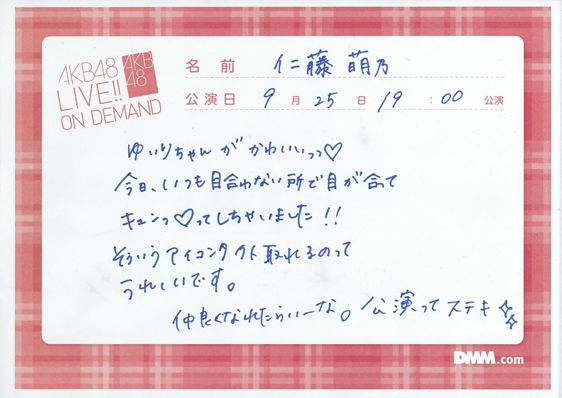 AKB48
LIVE!!
ON DEMAND
AKB
48
名 前 仁藤 萌乃
公演日 9 月 25 日 19 : 00 公演
ゆいりちゃんが かわいいっっ♡
今日、いつも目合わない所で目が合って
キュンっ♡ってしちゃいました!!
そういうアイコンタクト取れるのって
うれしいです。
仲良くなれたらいーな。公演ってステキ
DMM.com